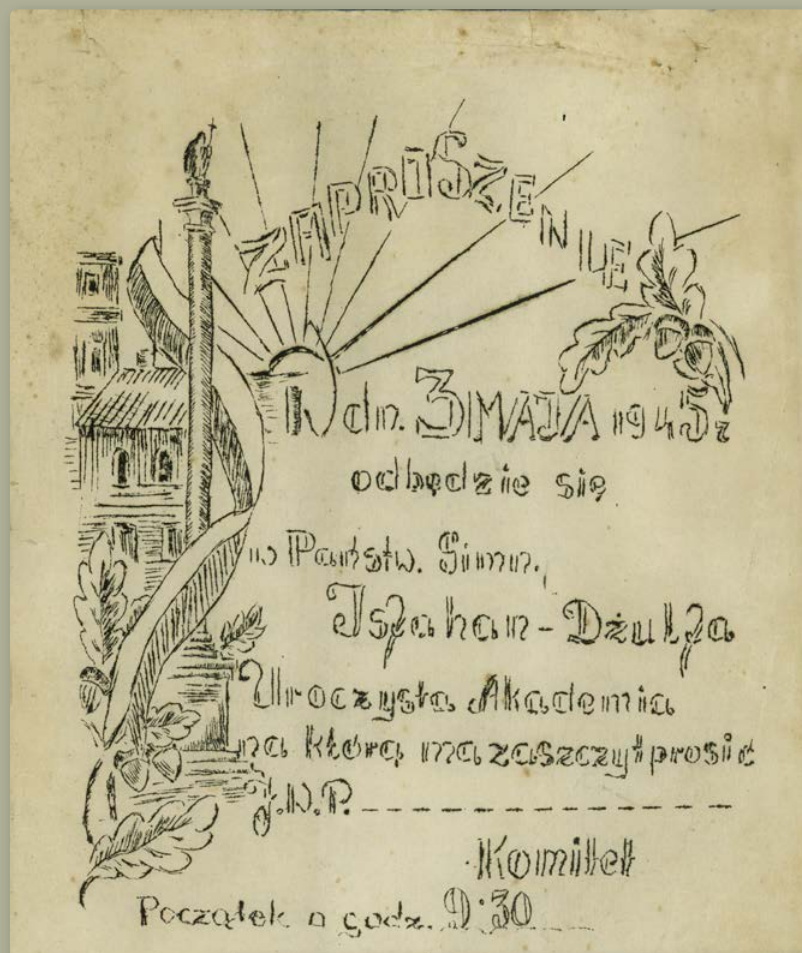 ZAPROSZENIE
W dn. 3 MAJA 1945 r
odbędzie się
w Państw. Gimn.
Isfahan - Dżulfa
Uroczysta Akademia
na którą ma zaszczyt prosić
J.W.P. _ _ _ _ _ _ _ _ _ _ _ _ _
Komitet
Początek o godz. 9:30